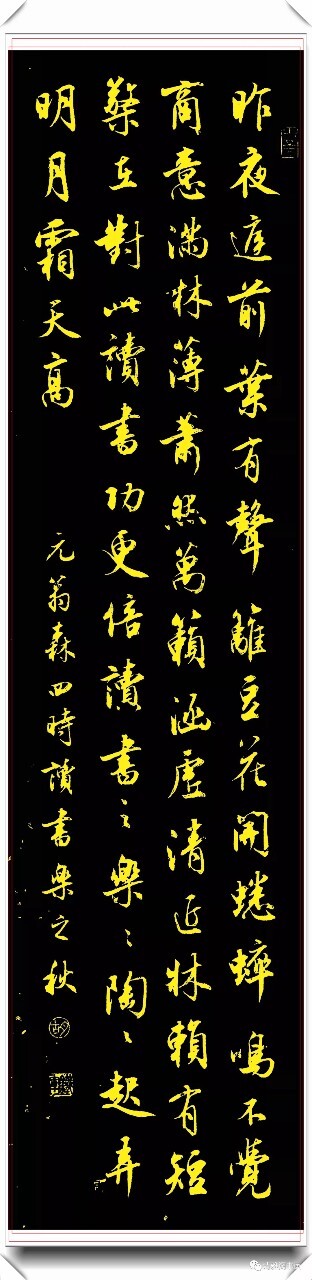 昨夜庭前葉有聲籬豆花開蟋蟀鳴不覺
商意滿林薄蕭然萬籟涵虛清近牀賴有短
檠在對此讀書功更倍讀書之樂〻陶〻起弄
明月霜天高
元翁森四時讀書樂之秋